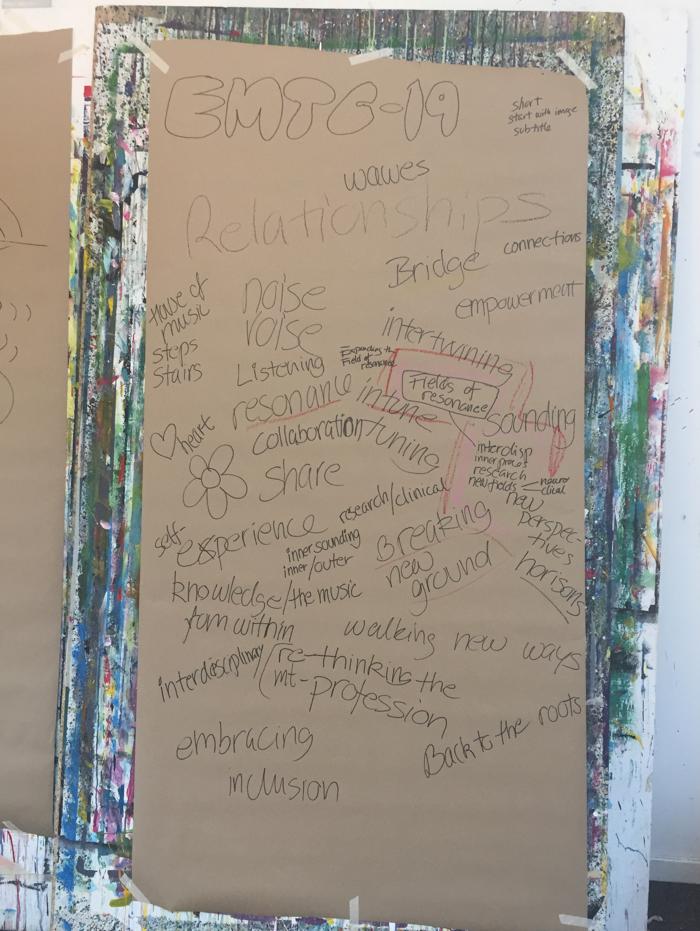 EMTC-19
short
start with image
subtitle
wawes
Relationships
Bridge
connections
empowerment
house of
music
steps
stairs
noise
voise
Listening
resonance
intertwining
Expanding the
Field of
resonance
Fields of
resonance
intune
tuning
sounding
heart
collaboration
share
interdisp
research
new fields
new
perspec-
tives
horisons
self
experience
research/clinical
inner sounding
inner/outer
Breaking
new
ground
knowledge/the music
from within
walking new ways
interdisciplinary/re-thinking the
mt-profession
embracing
inclusion
Back to the roots